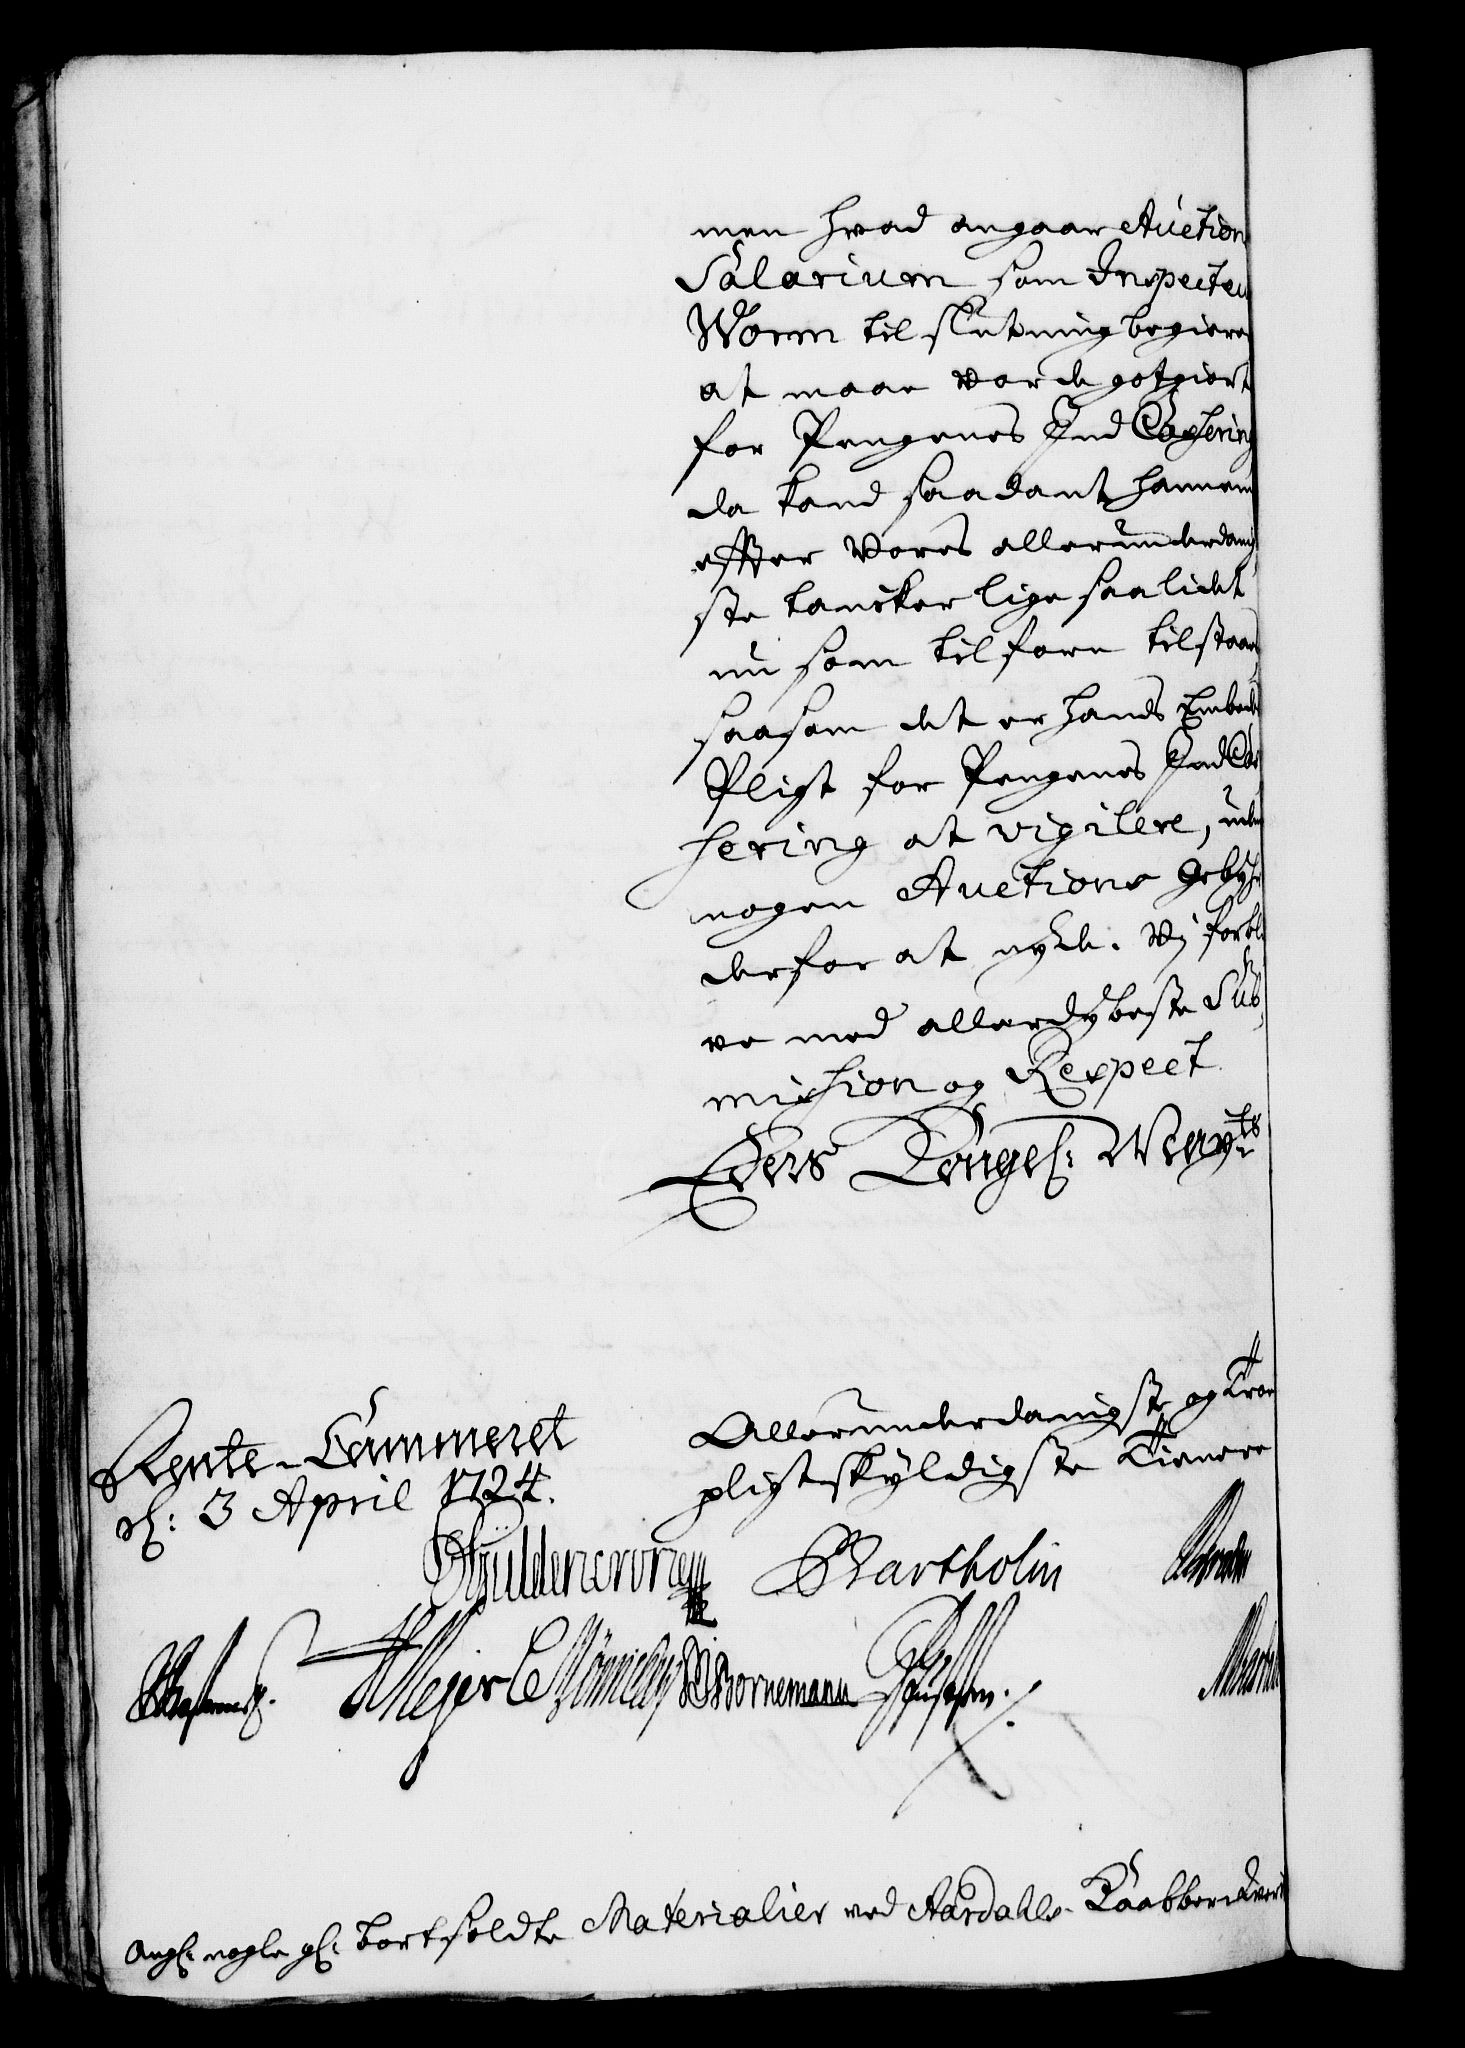 men hvad angaar Auction
Salarium som Inspecteu
Worm til slutning begierer
at maae vorde gotgiort
for Pengenes Ind Casering
da kand saadant hannem
effter Vores allerunderdanig
ste tancker lige saalidet
nu som tilforn tilstaaes,
saasom det er hands Embeds
Pligt for Pengenes Ind Cas
hering at vigilere, uden
nogen Auctions Gebyhr
derfor at nyde. Vj forbli
ve med allerdybeste Sub,
mission og Respect
Eders Kongel: Mayts
Allerunderdanigste og Troe
pligtskyldigste Tienere
Rente-Cammeret
d: 3 April 1724.
Güldencrone Bartholin
Meyer C Mönnichen Bornemann
Angl: nogle gl: bortsoldte Materialier ved Aardahls Kaabberverk